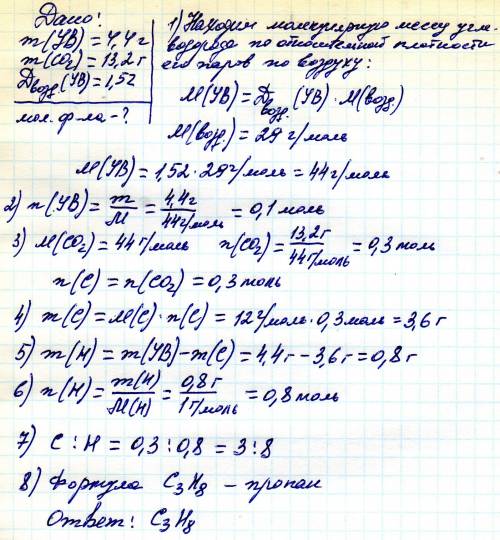 Дано:
m(УВ) = 4,4 г
m(CO₂) = 13,2 г
Dвозд.(УВ) = 1,52
мол. ф-ла - ?
1) Находим молекулярную массу угле-
водорода по относительной плотности
его паров по воздуху:
M(УВ) = Dвозд.(УВ) · M(возд.)
M(возд.) = 29 г/моль
M(УВ) = 1,52 · 29 г/моль = 44 г/моль
2) n(УВ) = m/M = 4,4 г/44 г/моль = 0,1 моль
3) M(CO₂) = 44 г/моль n(CO₂) = 13,2 г/44 г/моль = 0,3 моль
n(C) = n(CO₂) = 0,3 моль
4) m(C) = M(C) · n(C) = 12 г/моль · 0,3 моль = 3,6 г
5) m(H) = m(УВ) - m(C) = 4,4 г - 3,6 г = 0,8 г
6) n(H) = m(H)/M(H) = 0,8 г/1 г/моль = 0,8 моль
7) C : H = 0,3 : 0,8 = 3 : 8
8) Формула C₃H₈ - пропан
Ответ: C₃H₈